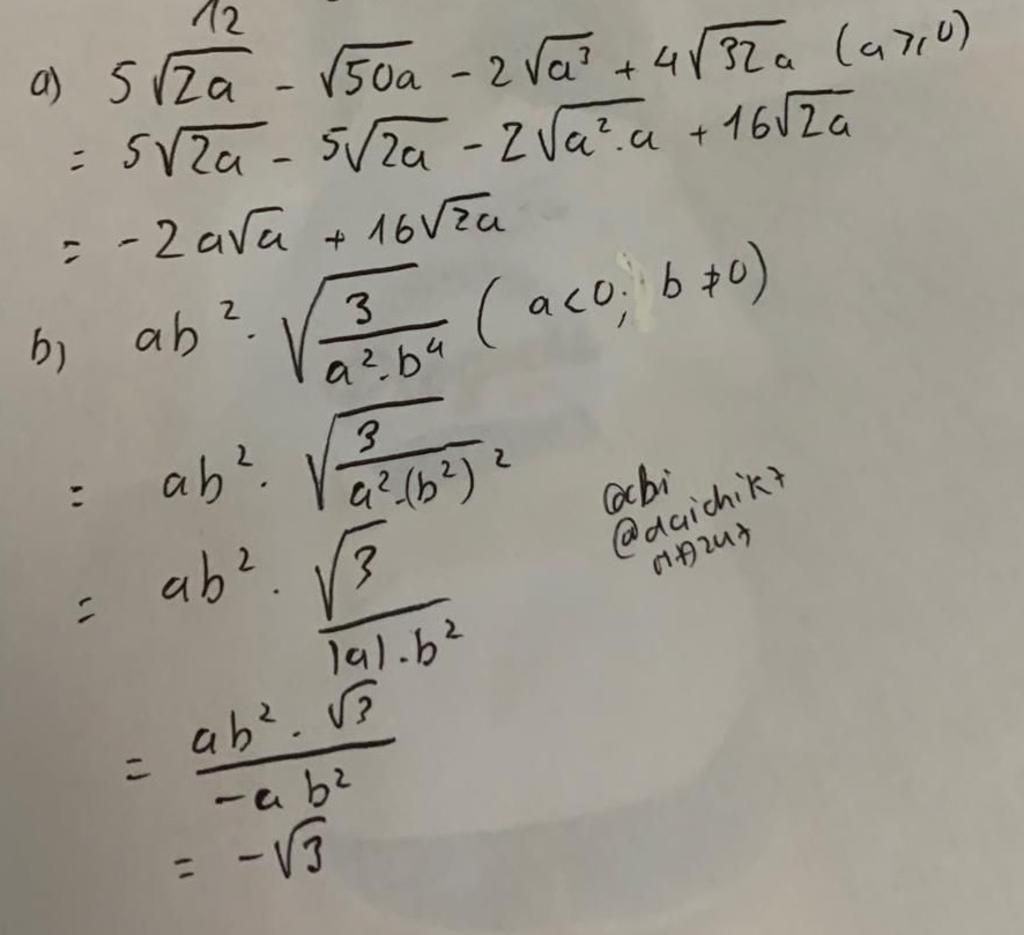 12
a) 5√2a - √50a - 2√a³ + 4√32a (a ≥ 0)
= 5√2a - 5√2a - 2√a².a + 16√2a
= -2a√a + 16√2a
b) ab². √(3/(a².b⁴)) (a<0; b ≠ 0)
= ab². √(3/(a².(b²)²))
= ab². √3/(|a|.b²)
= (ab².√3)/(-ab²)
= -√3